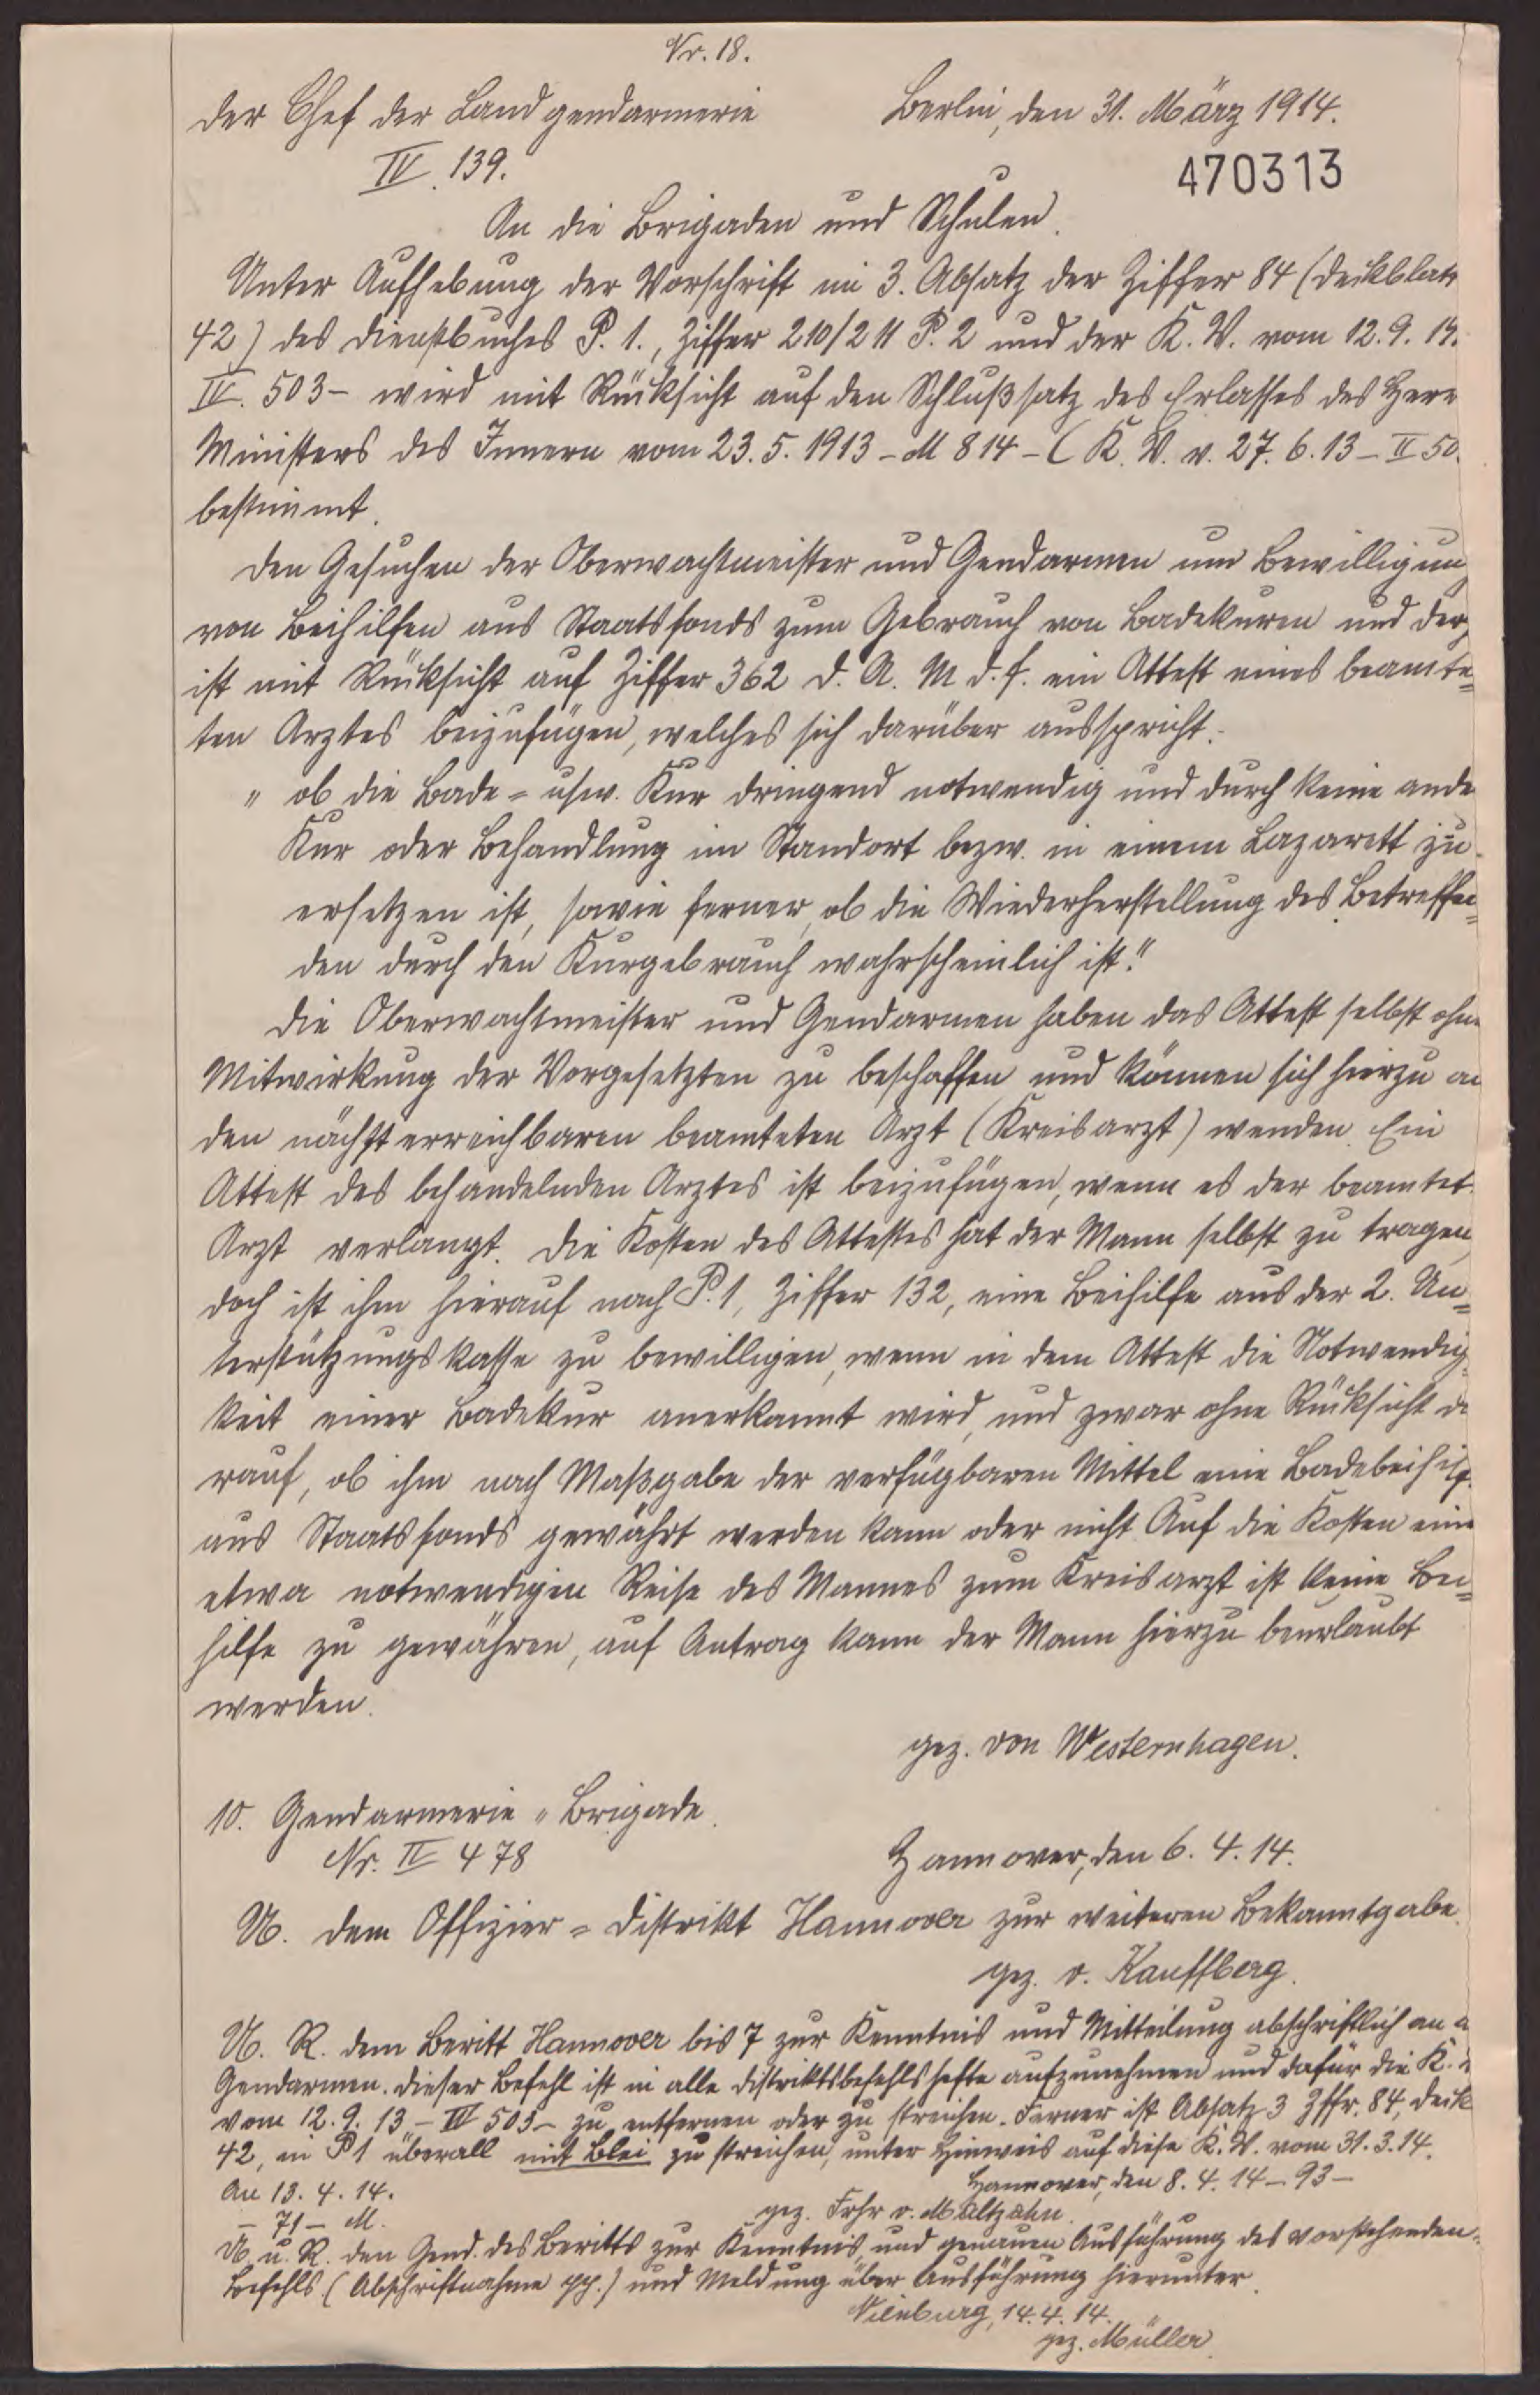 Nr. 18.
Der Chef der Landgendarmerie Berlin, den 31. März 1914.
IV. 139. 470313
An die Brigaden und Schulen.
Unter Aufhebung der Vorschrift im 3. Absatz der Ziffer 84 (Deckblatt
42) des Dienstbuches P. 1., Ziffer 210/211 P. 2 und der K. V. vom 12. 9. 13.
IV. 503 - wird mit Rücksicht auf den Schlußsatz des Erlasses des Herr
Ministers des Innern vom 23. 5. 1913 - M 814 - (K. V. v. 27. 6. 13 - II 50
bestimmt.
Den Gesuchen der Oberwachtmeister und Gendarmen um Bewilligung
von Beihilfen aus Staatsfonds zum Gebrauch von Badekuren und derg
ist mit Rücksicht auf Ziffer 362 d. A. M. d. F. ein Attest eines beamte=
ten Arztes beizufügen, welches sich darüber ausspricht:
" ob die Bade= usw. Kur dringend notwendig und durch keine ande
Kur oder Behandlung im Standort bezw. in einem Lazarett zu
ersetzen ist, sowie ferner, ob die Wiederherstellung des Betreffen=
den durch den Kurgebrauch wahrscheinlich ist."
Die Oberwachtmeister und Gendarmen haben das Attest selbst ohne
Mitwirkung der Vorgesetzten zu beschaffen und können sich hierzu an
den nächst erreichbaren beamteten Arzt (Kreisarzt) wenden. Ein
Attest des behandelnden Arztes ist beizufügen, wenn es der beamtet.
Arzt verlangt. Die Kosten des Attestes hat der Mann selbst zu tragen,
doch ist ihm hierauf nach P. 1, Ziffer 132, eine Beihilfe aus der 2. Un=
terstützungskasse zu bewilligen, wenn in dem Attest die Notwendig
keit einer Badekur anerkannt wird, und zwar ohne Rücksicht da
rauf, ob ihm nach Maßgabe der verfügbaren Mittel eine Badebeihilf
aus Staatsfonds gewährt werden kann oder nicht. Auf die Kosten eine
etwa notwendigen Reise des Mannes zum Kreisarzt ist keine Bei=
hilfe zu gewähren, auf Antrag kann der Mann hierzu beurlaubt
werden.
gez. von Westernhagen.
10. Gendarmerie = Brigade.
Nr. II 478 Hannover, den 6. 4. 14.
U. dem Offizier = Distrikt Hannover zur weiteren Bekanntgabe.
gez. v. Kauffberg.
U. R. dem Beritt Hannover bis 7 zur Kenntnis und Mitteilung abschriftlich an a
Gendarmen. Dieser Befehl ist in alle Distriktsbefehlshefte aufzunehmen und dafür die K.
vom 12. 9. 13 - IV 503 - zu entfernen oder zu streichen. Ferner ist Absatz 3 Zffr. 84, Deck
42, in P 1 überall mit Blei zu streichen, unter Hinweis auf diese K. V. vom 31. 3. 14.
An 13. 4. 14. Hannover, den 8. 4. 14 - 93 -
- 71 - M. gez. Frhr v. Maltzahn.
U. u. R. den Gend. des Beritts zur Kenntnis und genauen Ausführung des vorstehenden
Befehls (Abschriftnahme pp.) und Meldung über Ausführung hierunter.
Nienburg, 14. 4. 14.
gez. Müller.